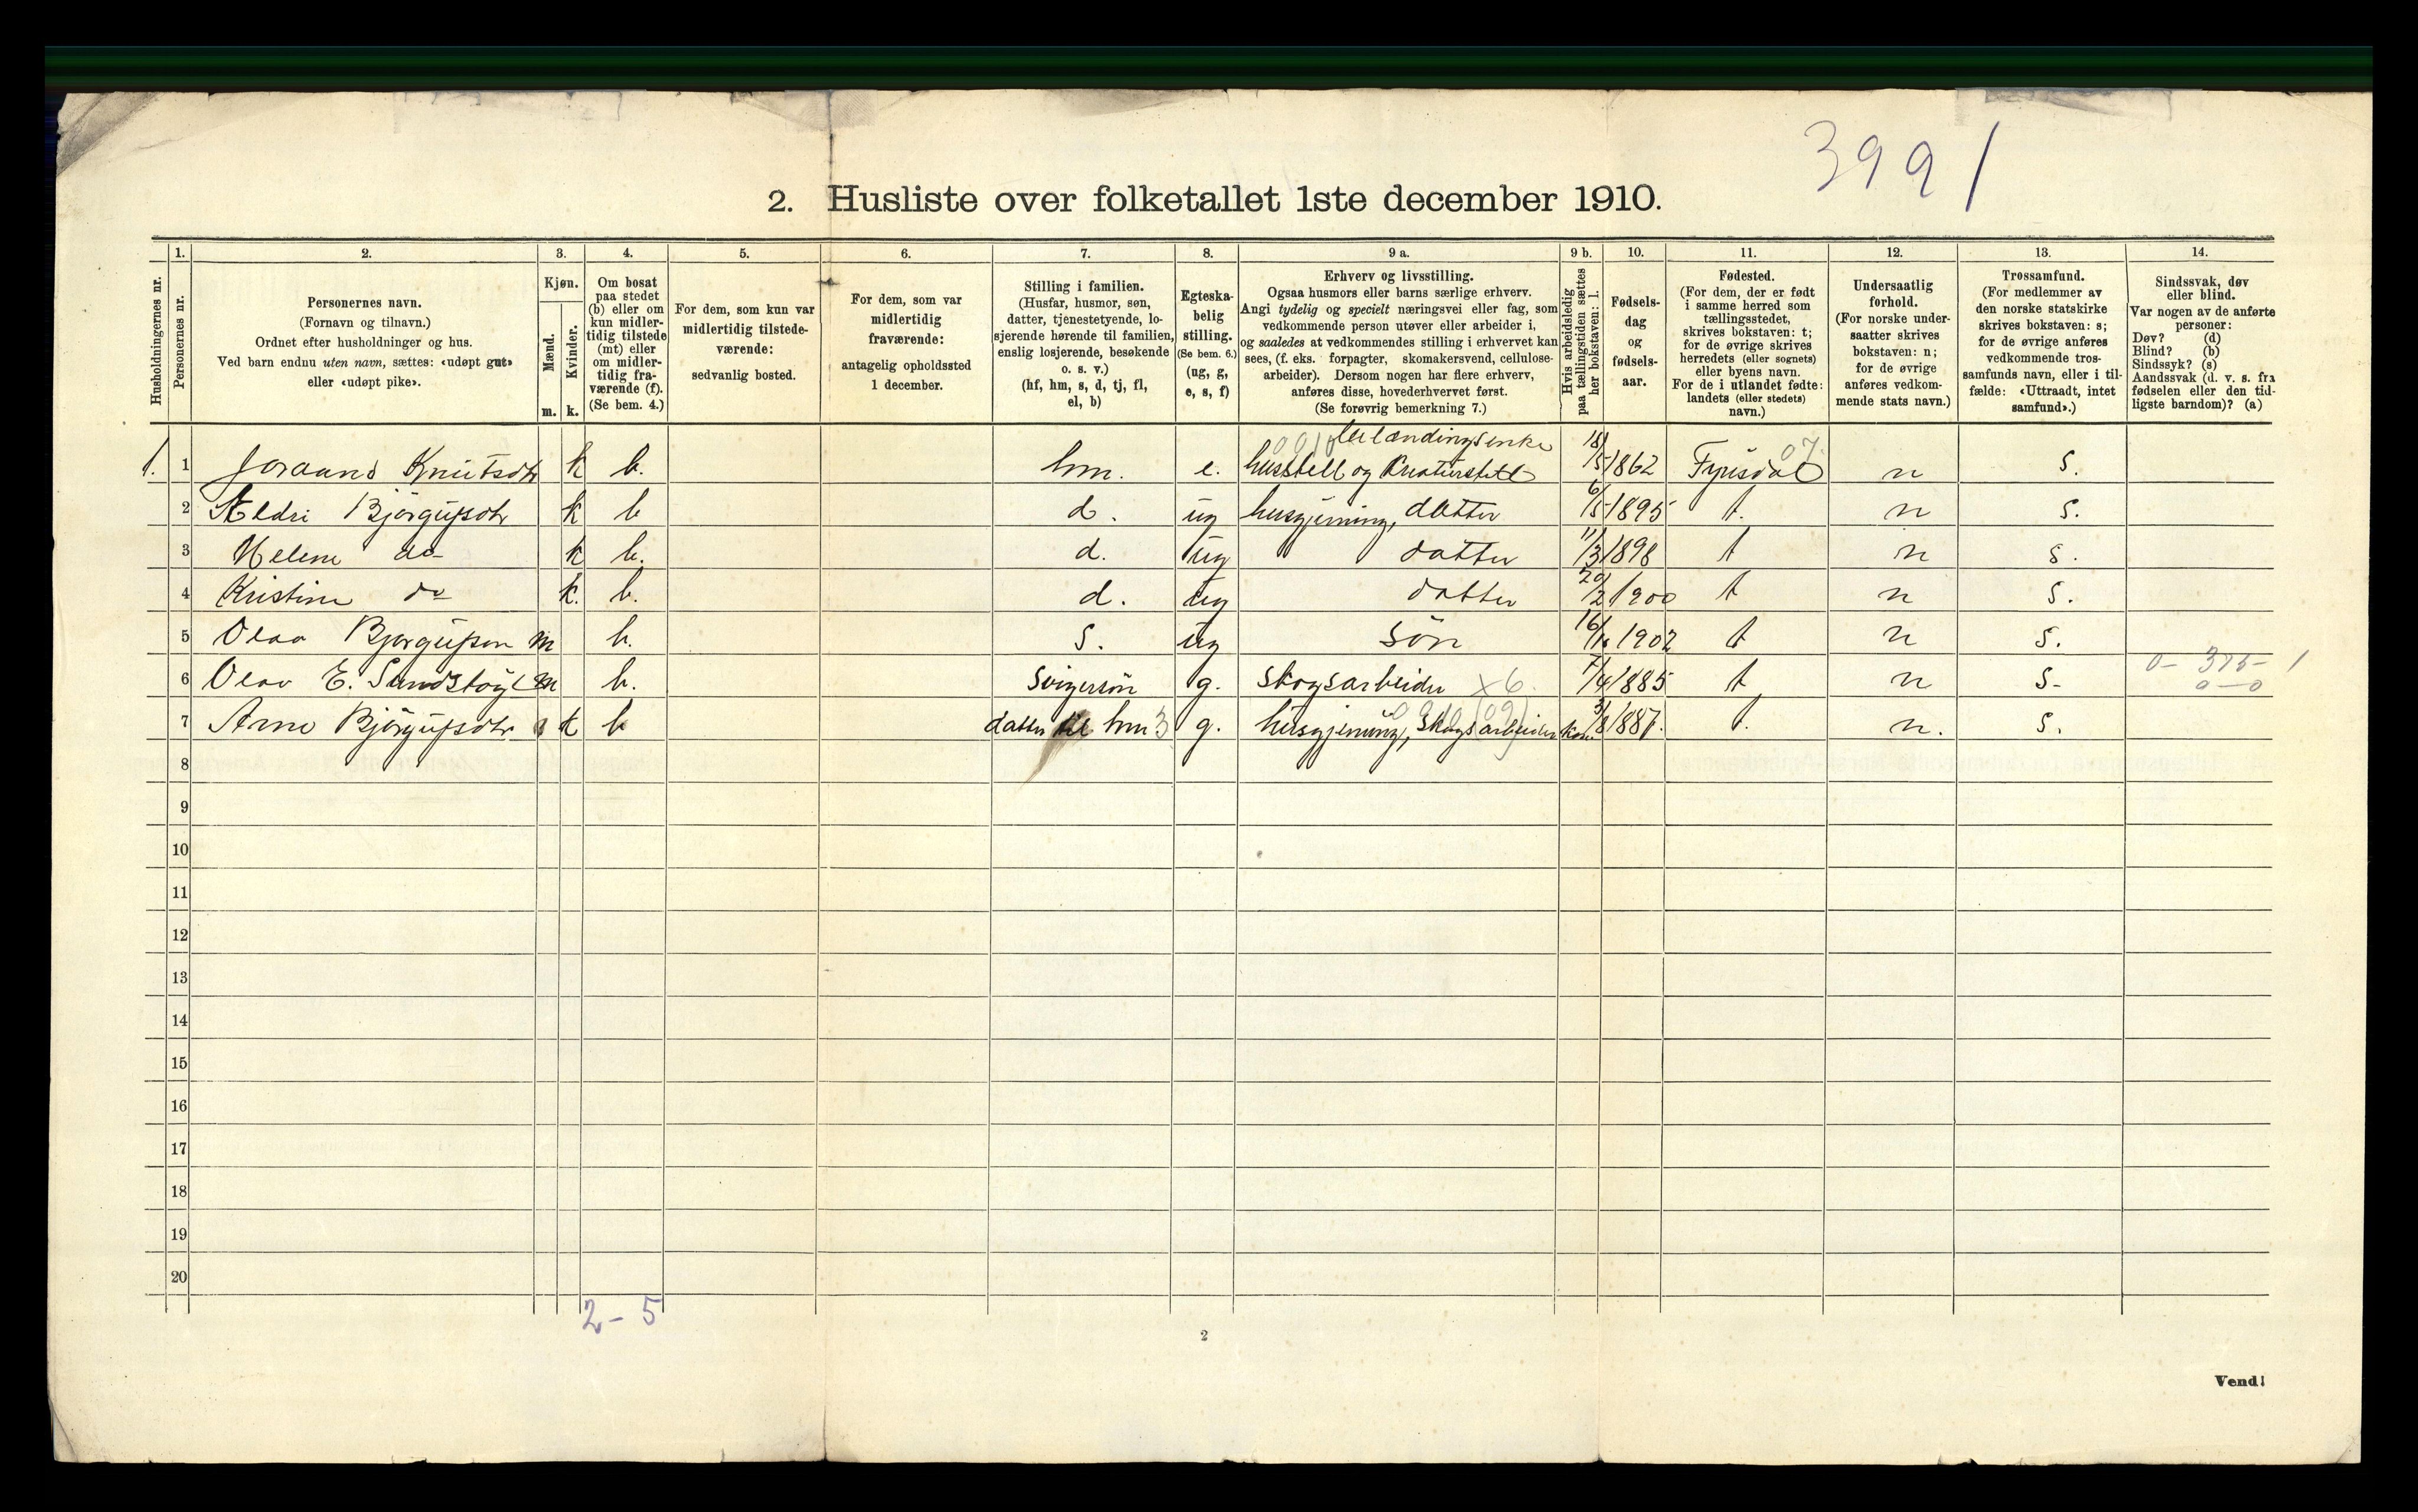 3991
2. Husliste over folketallet 1ste december 1910.
Husholdningernes nr.
1.
Personernes nr.
2.
Personernes navn.
(Fornavn og tilnavn.)
Ordnet efter husholdninger og hus.
Ved barn endnu uten navn, sættes: «udøpt gut»
eller «udøpt pike».
3.
Kjøn.
Mænd.
Kvinder.
m. k.
4.
Om bosat
paa stedet
(b) eller om
kun midler-
tidig tilstede
(mt) eller
om midler-
tidig fra-
værende (f).
(Se bem. 4.)
5.
For dem, som kun var
midlertidig tilstede-
værende:
sedvanlig bosted.
6.
For dem, som var
midlertidig
fraværende:
antagelig opholdssted
1 december.
7.
Stilling i familien.
(Husfar, husmor, søn,
datter, tjenestetyende, lo-
sjerende hørende til familien,
enslig losjerende, besøkende
o. s. v.)
(hf, hm, s, d, tj, fl,
el, b)
8.
Egteska-
belig
stilling.
(Se bem. 6.)
(ug, g,
e, s, f)
9 a.
Erhverv og livsstilling.
Ogsaa husmors eller barns særlige erhverv.
Angi tydelig og specielt næringsvei eller fag, som
vedkommende person utøver eller arbeider i,
og saaledes at vedkommendes stilling i erhvervet kan
sees, (f. eks. forpagter, skomakersvend, cellulose-
arbeider). Dersom nogen har flere erhverv,
anføres disse, hovederhvervet først.
(Se forøvrig bemerkning 7.)
9 b.
Hvis arbeidsledig
paa tællingstiden sættes
her bokstaven: l.
10.
Fødsels-
dag
og
fødsels-
aar.
11.
Fødested.
(For dem, der er født
i samme herred som
tællingsstedet,
skrives bokstaven: t;
for de øvrige skrives
herredets (eller sognets)
eller byens navn.
For de i utlandet fødte:
landets (eller stedets)
navn.)
12.
Undersaatlig
forhold.
(For norske under-
saatter skrives
bokstaven: n;
for de øvrige
anføres vedkom-
mende stats navn.)
13.
Trossamfund.
(For medlemmer av
den norske statskirke
skrives bokstaven: s;
for de øvrige anføres
vedkommende tros-
samfunds navn, eller i til-
fælde: «Uttraadt, intet
samfund».)
14.
Sindssvak, døv
eller blind.
Var nogen av de anførte
personer:
Døv? (d)
Blind? (b)
Sindssyk? (s)
Aandssvak (d. v. s. fra
fødselen eller den tid-
ligste barndom)? (a)
leilændingsenke
1. 1 Joraand Knutsdtr k b. hm. e. husstell og Kreaturstell 1862 Fyrisdal 07. n s.
2 Aldri Bjørgufsdtr k b d. ug husgjerning, datter 6/5 1895 t. n s.
3 Helene do k b. d. ug datter 11/3 1898 t n s.
4 Kristine do k. b. d. ug datter 20/2 1900 t n s.
5 Olav Bjørgufson m b. s. ug søn 16/ 1902 t n s.
6 Olav E. Sundstøyl m b. Svigersøn g. Skogsarbeider x6. 7/4 1885 t n s- 0- 375- 1
0-0
7 Arne Bjørgufsdtr k b datter til hm 3 g. husgjerning, Skogsarbeider kone 3/8 1887. t. n. s.
8
9
10
11
12
13
14
15
16
17
18
19
20
2-5
2
Vend!